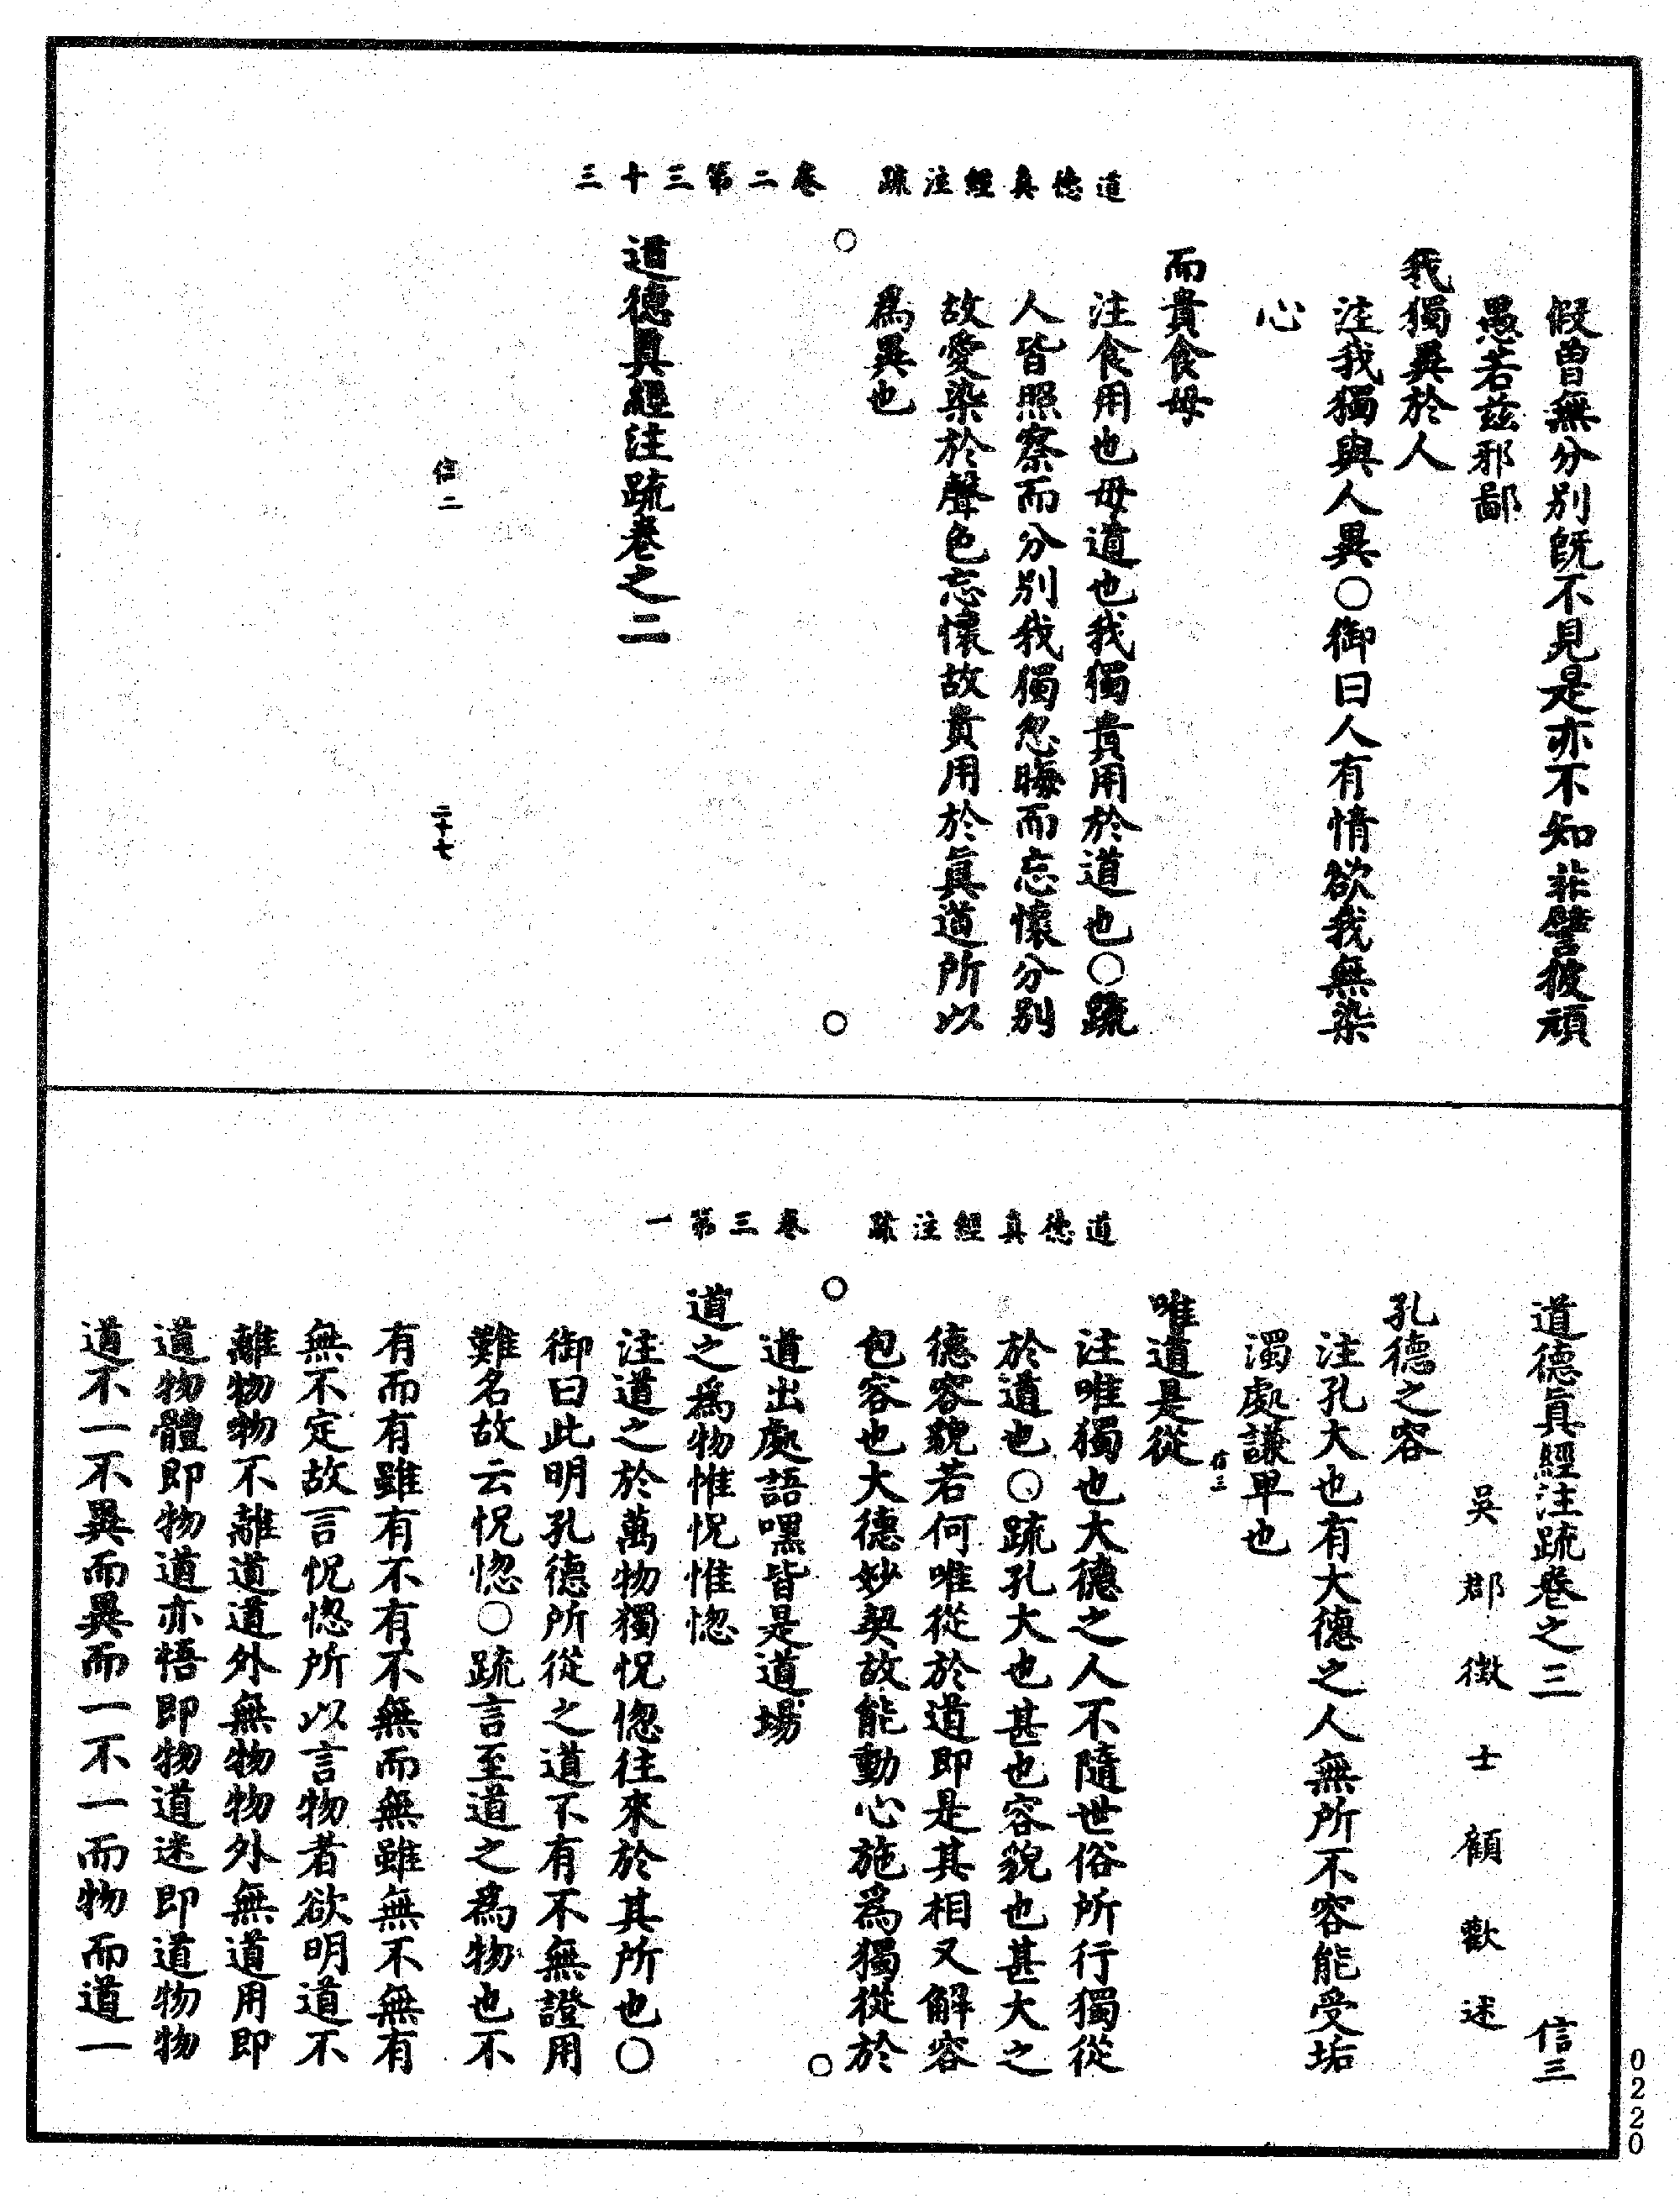 道德真經注疏　卷二第三十三
假曾無分別既不見是亦不知非譬彼頑
愚若茲邪鄙
我獨異於人
注我獨與人異○御曰人有情欲我無染
心
而貴食母
注食用也母道也我獨貴用於道也○疏
人皆照察而分別我獨忽晦而忘懷分別
故愛染於聲色忘懷故貴用於真道所以
爲異也
道德真經注疏卷之二
信二
二十七
道德真經注疏　卷三第一
道德真經注疏卷之三　信三
吳郡徵士顧歡述
孔德之容
注孔大也有大德之人無所不容能受垢
濁處謙卑也
信三
唯道是從
注唯獨也大德之人不隨世俗所行獨從
於道也○疏孔大也甚也容貌也甚大之
德容貌若何唯從於道即是其相又解容
包容也大德妙契故能動心施爲獨從於
道出處語嘿皆是道場
道之爲物惟怳惟惚
注道之於萬物獨怳惚往來於其所也○
御曰此明孔德所從之道不有不無證用
難名故云怳惚○疏言至道之爲物也不
有而有雖有不有不無而無雖無不無有
無不定故言怳惚所以言物者欲明道不
離物物不離道道外無物物外無道用即
道物體即物道亦悟即物道迷即道物物
道不一不異而異而一不一而物而道一
0220